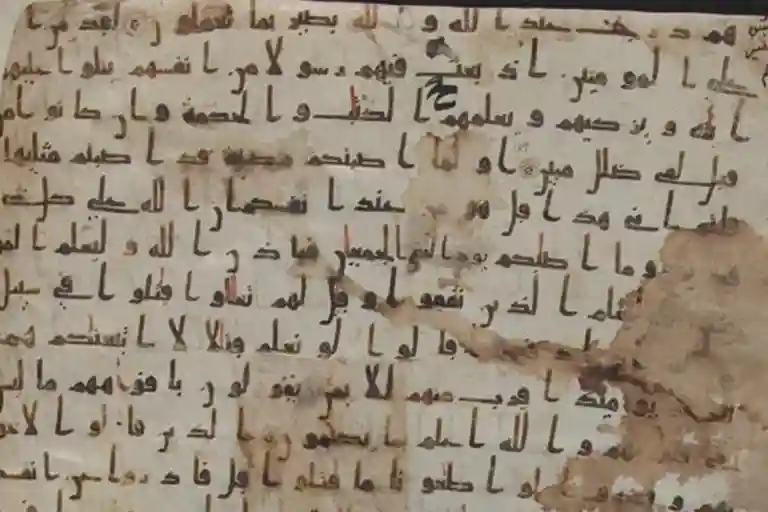 هم درجت عند الله والله بصير بما يعملون لقد من ا
على المومنين اذ بعث فيهم رسولا من انفسهم يتلوا عليهم
ويزكيهم ويعلمهم الكتب والحكمة وان كانوا من
لفي ضلل مبين اولما اصبتكم مصيبة قد اصبتم مثليها
قلتم انى هذا قل هو من عند انفسكم ان الله على كل شى
وما اصبكم يوم التقى الجمعن فباذن الله وليعلم المو
الذين نفقوا وقيل لهم تعالوا قتلوا في سبيل
قالوا لو نعلم قتالا لاتبعنكم هم
يومئذ اقرب منهم للايمن يقولون بافوههم ما ليس
والله اعلم بما يكتمون الذين قالوا لاخو
نهم وقعدوا لو اطاعونا ما قتلوا قل فادروا عن انفس